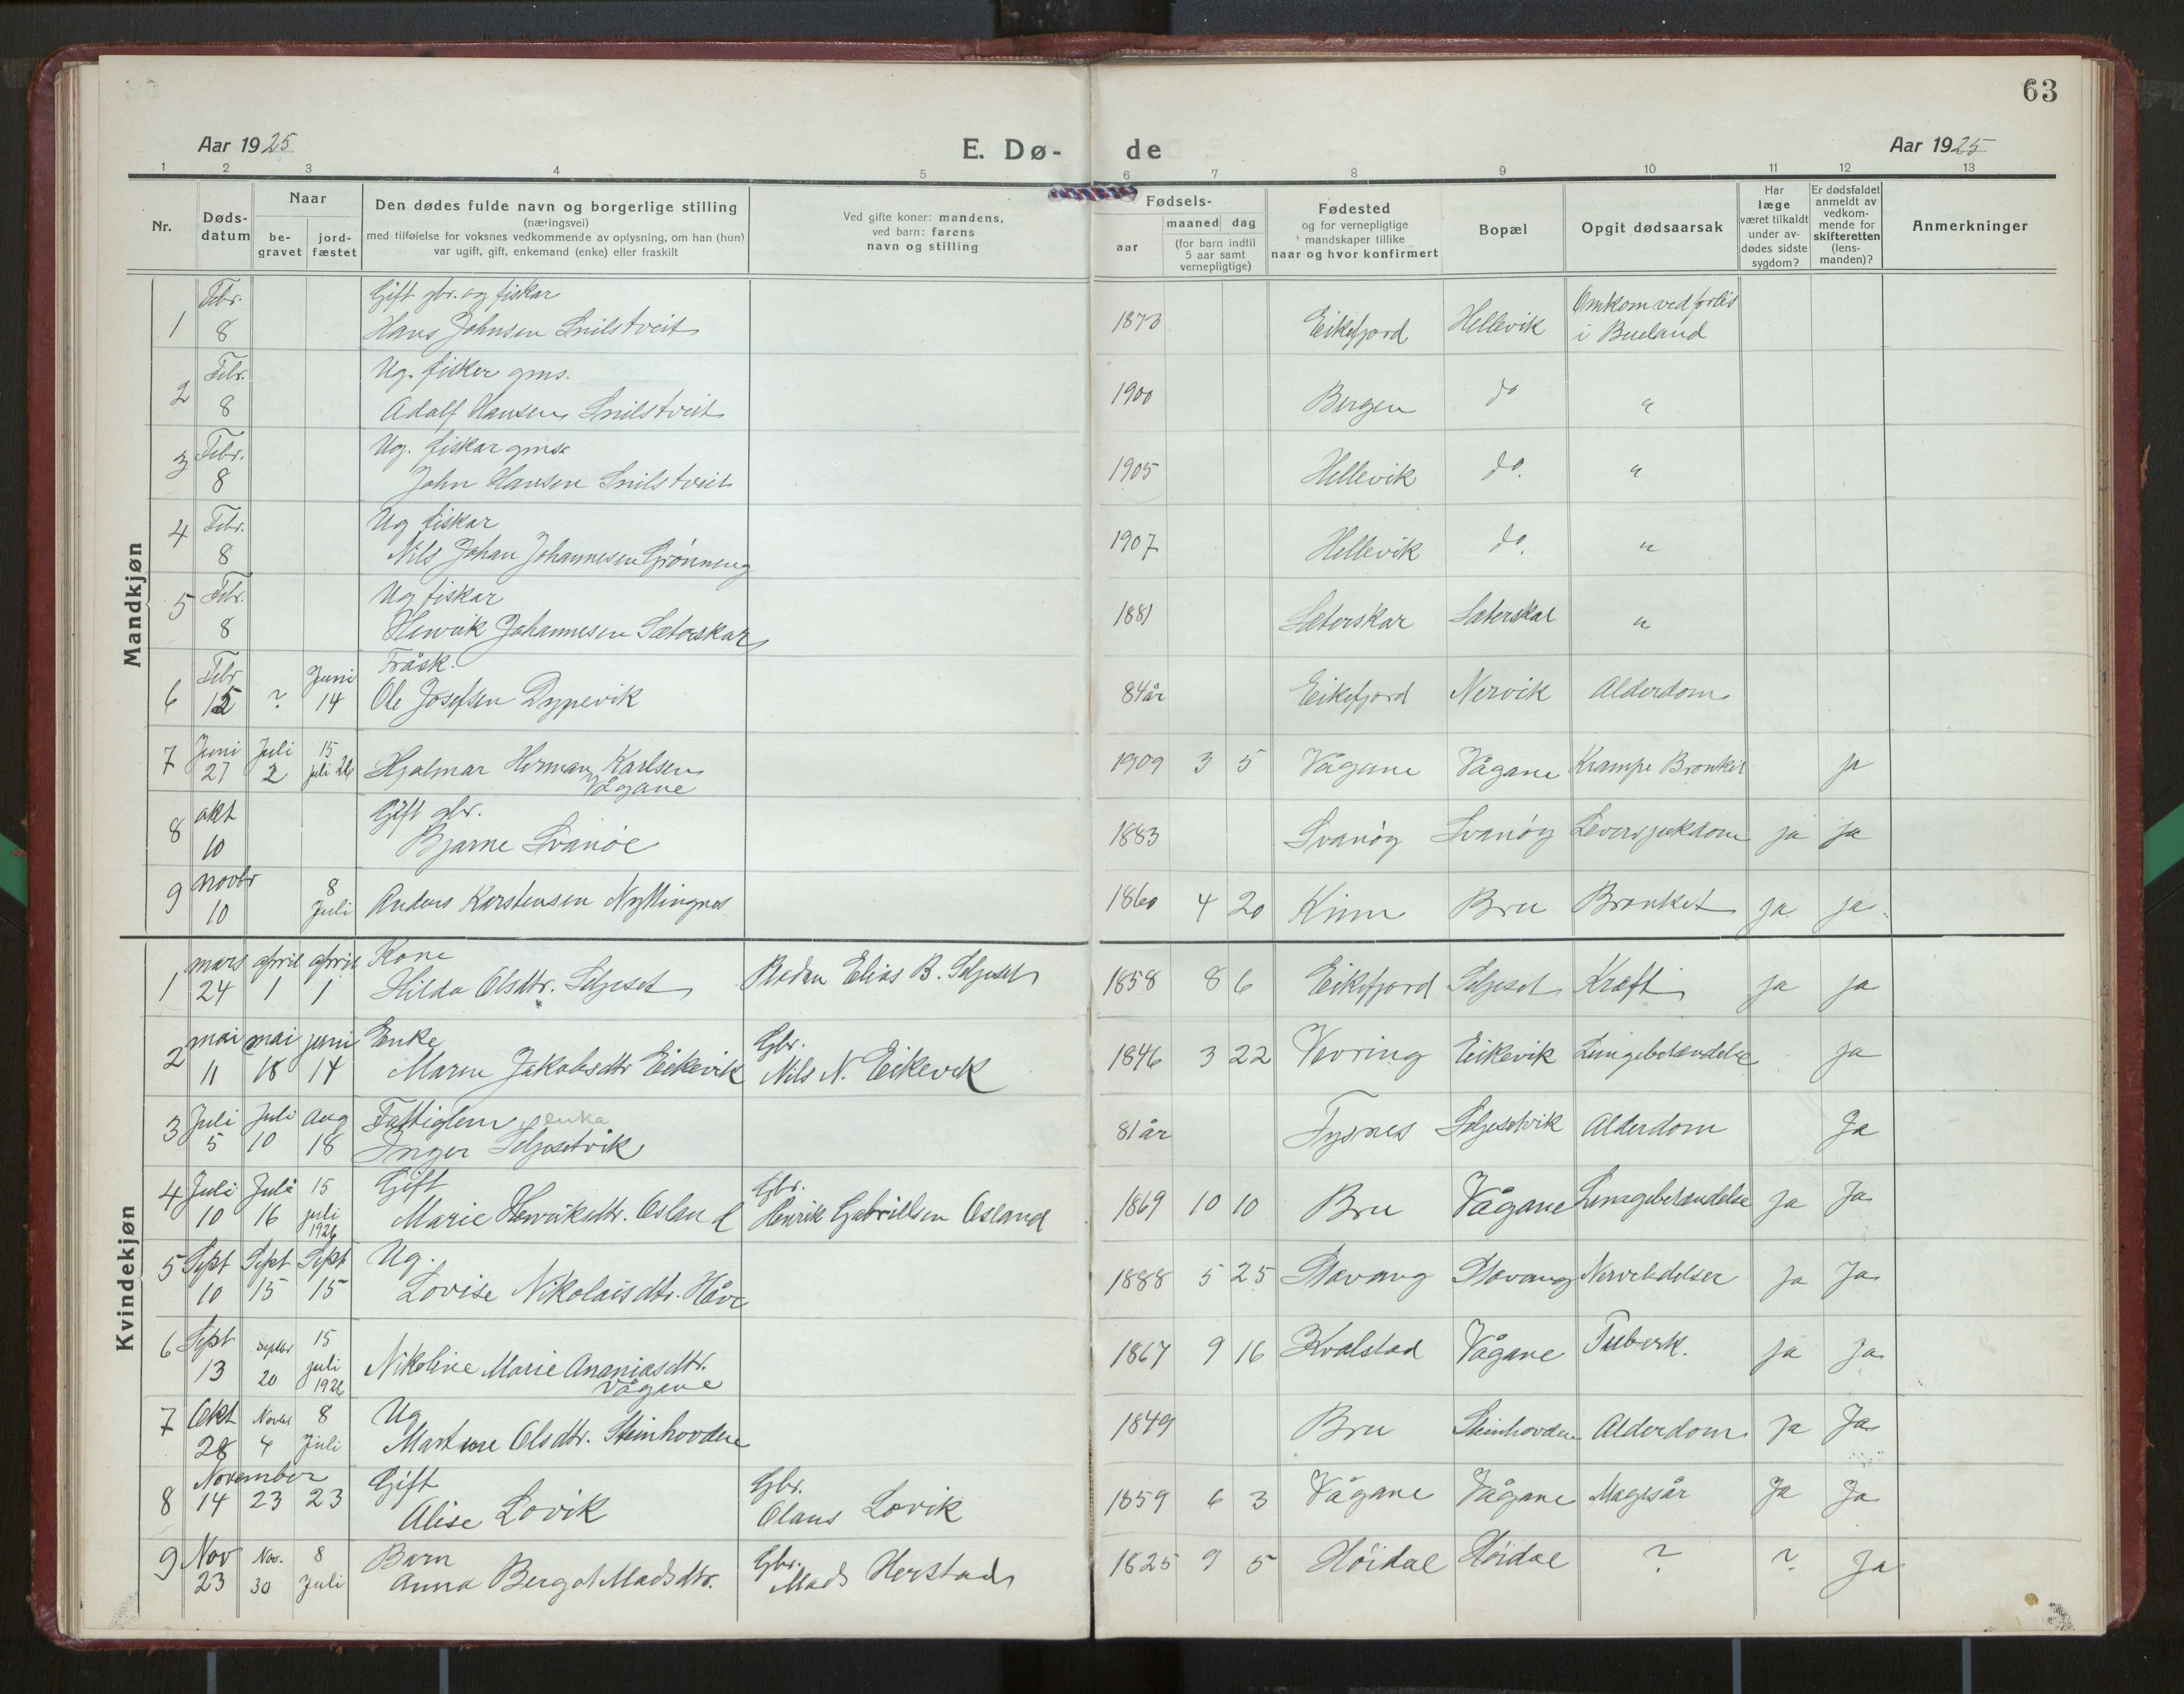 63
Aar 1925
E. Dø-
de
Aar 1925
1 2 3 4 5 6 7 8 9 10 11 12 13
Nr.
Døds-
datum
Naar
be-
gravet
jord-
fæstet
Den dødes fulde navn og borgerlige stilling
(næringsvei)
med tilføielse for voksnes vedkommende av oplysning, om han (hun)
var ugift, gift, enkemand (enke) eller fraskilt
Ved gifte koner: mandens,
ved barn: farens
navn og stilling
Fødsels-
aar
maaned dag
(for barn indtil
5 aar samt
vernepligtige)
Fødested
og for vernepligtige
mandskaper tillike
naar og hvor konfirmert
Bopæl
Opgit dødsaarsak
Har
læge
været tilkaldt
under av-
dødes sidste
sygdom?
Er dødsfaldet
anmeldt av
vedkom-
mende for
skifteretten
(lens-
manden)?
Anmerkninger
Mandkjøn
1 Febr. 8 Gift gbr. og fiskar
Hans Johnsen Snilstveit 1873 Eikefjord Hellevik Omkom ved forlis
i Bueland
2 Febr. 8 Ug. fisker gms.
Adolf Hansen Snilstveit 1900 Bergen do "
3 Febr. 8 Ug. fiskar gms.
John Hansen Snilstveit 1905 Hellevik do. "
4 Febr. 8 Ug fiskar
Nils Johan Johannesen Grønneng 1907 Hellevik do. "
5 Febr. 8 Ug fiskar
Henrik Johannesen Sæterskar 1881 Sæterskar Sæterskar "
6 Febr 15 ? Juni 14 Fråsk.
Ole Josefsen Dypevik 84 år Eikefjord Nervik Alderdom
7 Juni 27 Juli 2 15 juli 26 Hjalmar Herman Karlsen
Vågane 1909 3 5 Vågane Vågane Krampe Bronkit ja
8 okt 10 Gift gbr.
Bjarne Svanøe 1883 Svanøy Svanøy Leversjukdom ja ja
9 novbr 10 8 Juli Anders Karstensen Nyttingnes 1860 4 20 Kinn Bru Bronket ja ja
Kvindekjøn
1 mars 24 april 1 april 1 Kone
Hilda Olsdtr. Seljeset Elias B. Seljeset 1858 8 6 Eikefjord Seljeset Kræft ja ja
2 mai 11 mai 18 juni 14 Enke
Maren Jakobsdtr Eikevik Gbr.
Nils N. Eikevik 1846 3 22 Vevring Eikevik Lungebetændelse ja
3 Juli 5 Juli 10 Aug 18 Fattiglem enka
Inger Seljesetvik 81 år Tysnes Seljesetvik Alderdom Ja
4 Juli 10 Juli 16 15 juli 1926 Gift
Marie Henriksdtr. Osland Gbr.
Henrik Gabrillsen Osland 1869 10 10 Bru Vågane Lungebetændelse ja Ja
5 Sept 10 Sept 15 Sept 15 Ug.
Lovise Nikolaisdtr. Håvε 1888 5 25 Stavang Stavang Nervelidelser ja Ja
6 Sept 13 Septbr 20 15 juli 1926 Nikoline Marie Ananiasdtr.
Vågane 1867 9 16 Kvalstad Vågane Tuberk. ja Ja
7 Okt 28 Novbr 4 8 Juli Ug
Martine Olsdtr. Steinhovden 1849 Bru Steinhovden Alderdom ja Ja
8 November 14 23 23 Gift
Alise Løvik Gbr.
Olaus Løvik 1859 6 3 Vågane Vågane Magesår Ja Ja
9 Nov 23 Nov. 30 8 Juli Barn
Anna Bergot Madsdtr. Gbr.
Mads Herstad 1825 9 5 Høidal Høidal ? ? Ja